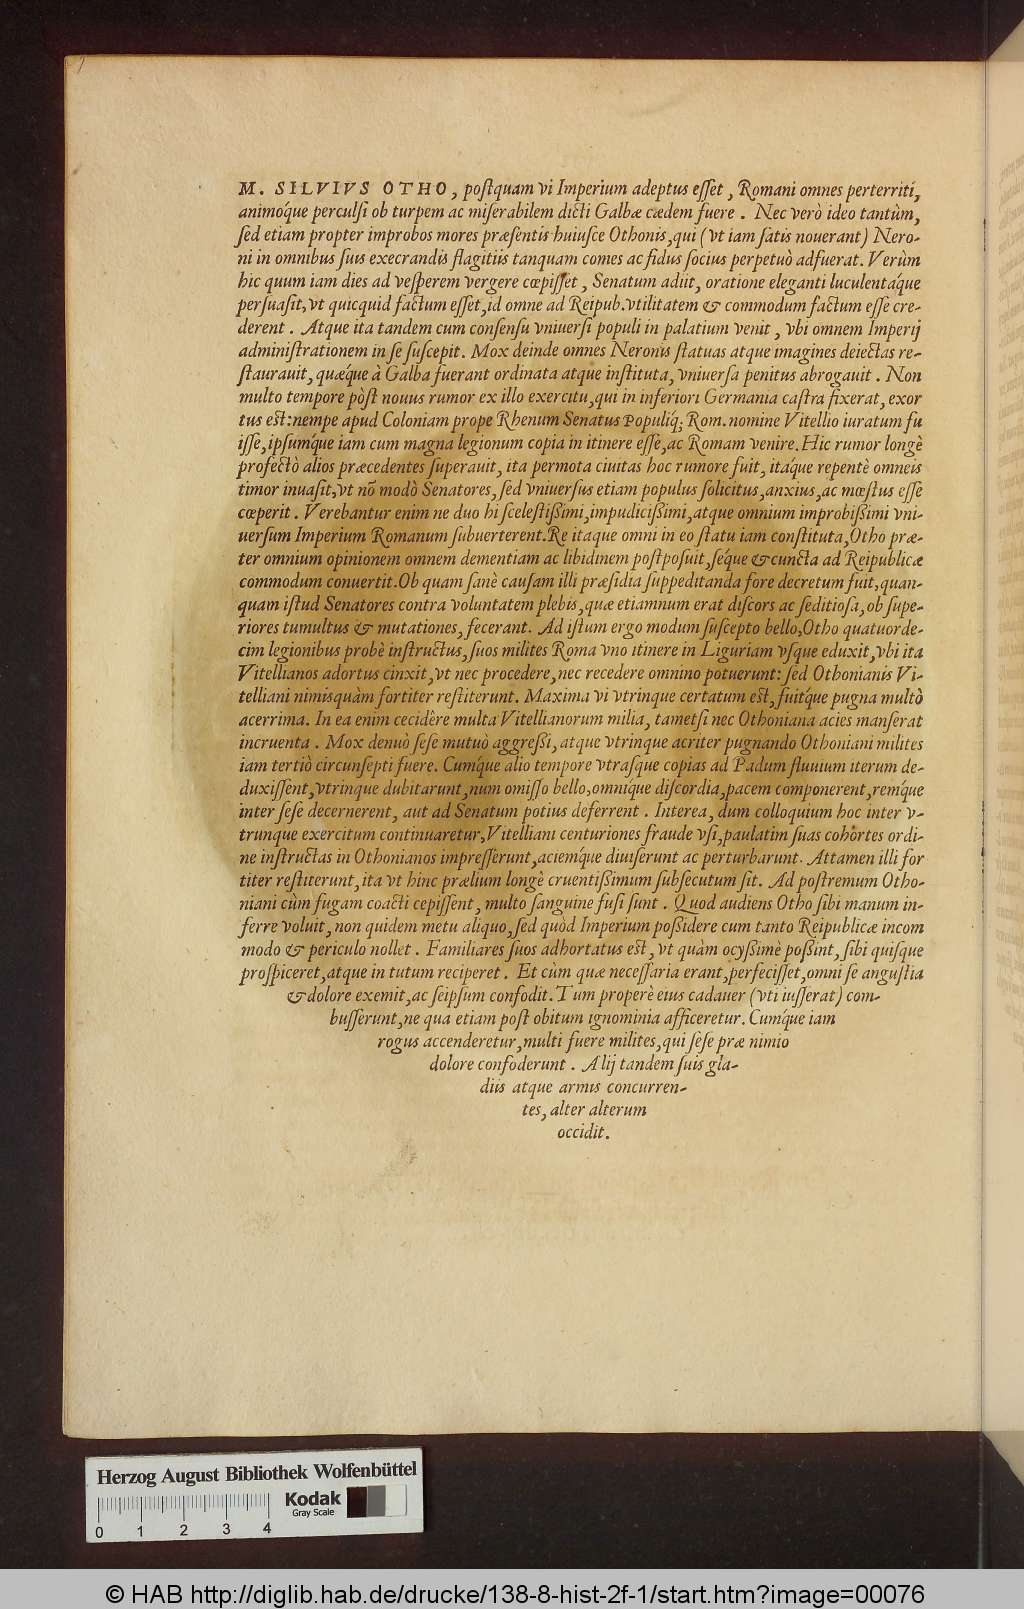 M. SILVIVS OTHO, poſtquam vi Imperium adeptus eſſet, Romani omnes perterriti,
animoq́ue perculſi ob turpem ac miſerabilem dicti Galbæ cædem fuere. Nec verò ideo tantùm,
ſed etiam propter improbos mores præſentis huiuſce Othonis, qui (vt iam ſatis nouerant) Nero-
ni in omnibus ſuis execrandis flagitiis tanquam comes ac fidus ſocius perpetuò adfuerat. Verùm
hic quum iam dies ad veſperem vergere cœpiſſet, Senatum adiit, oratione eleganti luculentaq́ue
perſuaſit, vt quicquid factum eſſet, id omne ad Reipub. vtilitatem & commodum factum eſſe cre-
derent. Atque ita tandem cum conſenſu vniuerſi populi in palatium venit, vbi omnem Imperij
adminiſtrationem in ſe ſuſcepit. Mox deinde omnes Neronis ſtatuas atque imagines deiectas re-
ſtaurauit, quæque à Galba fuerant ordinata atque inſtituta, vniuerſa penitus abrogauit. Non
multo tempore pòſt nouus rumor ex illo exercitu, qui in inferiori Germania caſtra fixerat, exor
tus eſt: nempe apud Coloniam prope Rhenum Senatus Populiq́; Rom. nomine Vitellio iuratum fu
iſſe, ipſumq́ue iam cum magna legionum copia in itinere eſſe, ac Romam venire. Hic rumor longè
profectò alios præcedentes ſuperauit, ita permota ciuitas hoc rumore fuit, itaq́ue repentè omneis
timor inuaſit, vt nõ modò Senatores, ſed vniuerſus etiam populus ſolicitus, anxius, ac mœſtus eſſe
cœperit. Verebantur enim ne duo hi ſceleſtißimi, impudicißimi, atque omnium improbißimi vni-
uerſum Imperium Romanum ſubuerterent. Re itaque omni in eo ſtatu iam conſtituta, Otho præ-
ter omnium opinionem omnem dementiam ac libidinem poſtpoſuit, ſeq́ue & cuncta ad Reipublicæ
commodum conuertit. Ob quam ſanè cauſam illi præſidia ſuppeditanda fore decretum fuit, quan-
quam iſtud Senatores contra voluntatem plebis, quæ etiamnum erat diſcors ac ſeditioſa, ob ſupe-
riores tumultus & mutationes, fecerant. Ad iſtum ergo modum ſuſcepto bello, Otho quatuorde-
cim legionibus probè inſtructus, ſuos milites Roma vno itinere in Liguriam vſque eduxit, vbi ita
Vitellianos adortus cinxit, vt nec procedere, nec recedere omnino potuerunt: ſed Othonianis Vi-
telliani nimisquàm fortiter reſtiterunt. Maxima vi vtrinque certatum eſt, fuitq́ue pugna multò
acerrima. In ea enim cecidêre multa Vitellianorum milia, tametſi nec Othoniana acies manſerat
incruenta. Mox denuò ſeſe mutuò aggreßi, atque vtrinque acriter pugnando Othoniani milites
iam tertiò circunſepti fuere. Cumq́ue alio tempore vtraſque copias ad Padum fluuium iterum de-
duxiſſent, vtrinque dubitarunt, num omiſſo bello, omniq́ue diſcordia, pacem componerent, remq́ue
inter ſeſe decernerent, aut ad Senatum potius deferrent. Interea, dum colloquium hoc inter v-
trunque exercitum continuaretur, Vitelliani centuriones fraude vſi, paulatim ſuas cohortes ordi-
ne inſtructas in Othonianos impreſſerunt, aciemq́ue diuiſerunt ac perturbarunt. Attamen illi for
titer reſtiterunt, ita vt hinc prælium longè cruentißimum ſubſecutum ſit. Ad poſtremum Otho-
niani cùm fugam coacti cepiſſent, multo ſanguine fuſi ſunt. Quod audiens Otho ſibi manum in-
ferre voluit, non quidem metu aliquo, ſed quòd Imperium poßidere cum tanto Reipublicæ incom
modo & periculo nollet. Familiares ſuos adhortatus eſt, vt quàm ocyßimè poßint, ſibi quiſque
proſpiceret, atque in tutum reciperet. Et cùm quæ neceſſaria erant, perfeciſſet, omni ſe anguſtia
& dolore exemit, ac ſeipſum confodit. Tum properè eius cadauer (vti iuſſerat) com-
buſſerunt, ne qua etiam poſt obitum ignominia afficeretur. Cumq́ue iam
rogus accenderetur, multi fuere milites, qui ſeſe præ nimio
dolore confoderunt. Alij tandem ſuis gla-
diis atque armis concurren-
tes, alter alterum
occidit.
Herzog August Bibliothek Wolfenbüttel
Kodak
Gray Scale
0 1 2 3 4
© HAB http://diglib.hab.de/drucke/138-8-hist-2f-1/start.htm?image=00076